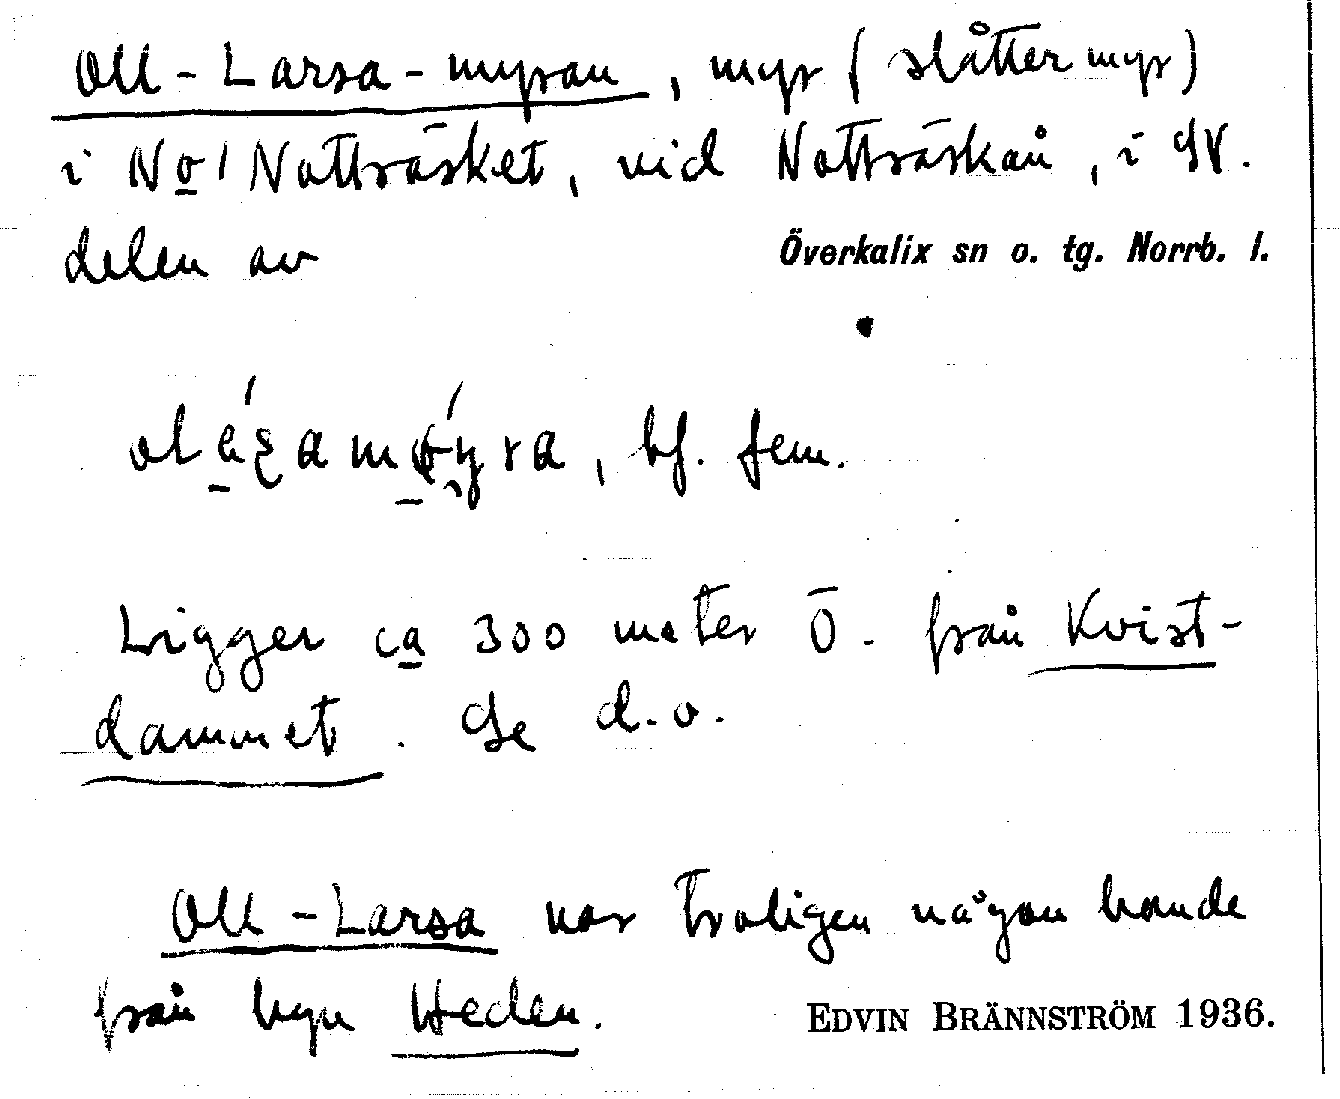 Oll-Larsa-myran, myr (slåttermyr)
i No/Nattträsket, vid Nattträskån, i SV.
delen av Överkalix sn o. tg. Norrb. l.
, bf. fem.
Ligger ca 300 meter Ö. från Kvist-
dammet. Se d.o.
Oll-Larsa var troligen någon bonde
från byn Heden. EDVIN BRÄNNSTRÖM 1936.